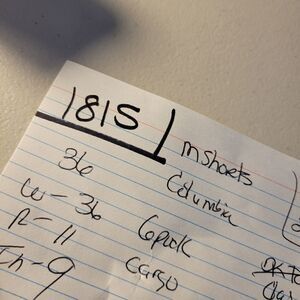 1815
mshorts
36
Columbia
W-36
6pack
R-11
Cargo
Th-9